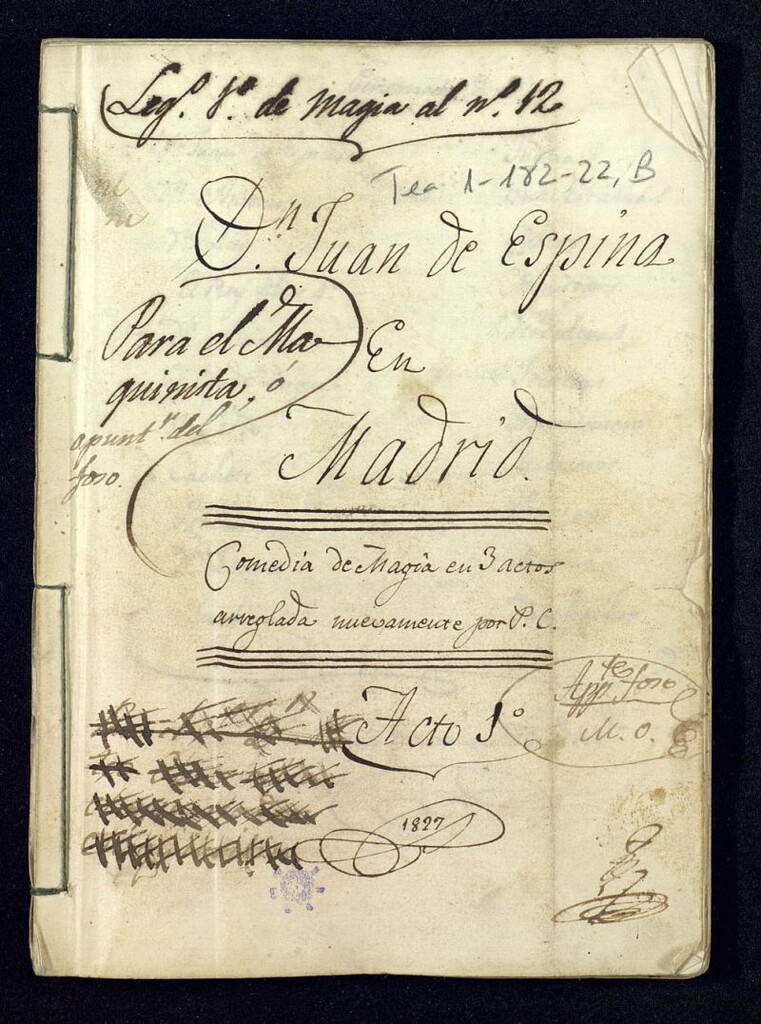 Legº. 1º. de Magia al nº. 12
Tea 1-182-22, B
Dn. Juan de Espina
Para el Ma
quinista, ó
apuntr. del
foso.
En
Madrid.
Comedia de Magia en 3 actos
arreglada nuevamente por P. C.
Acto 1º
Appte. foso
M. O.
1827